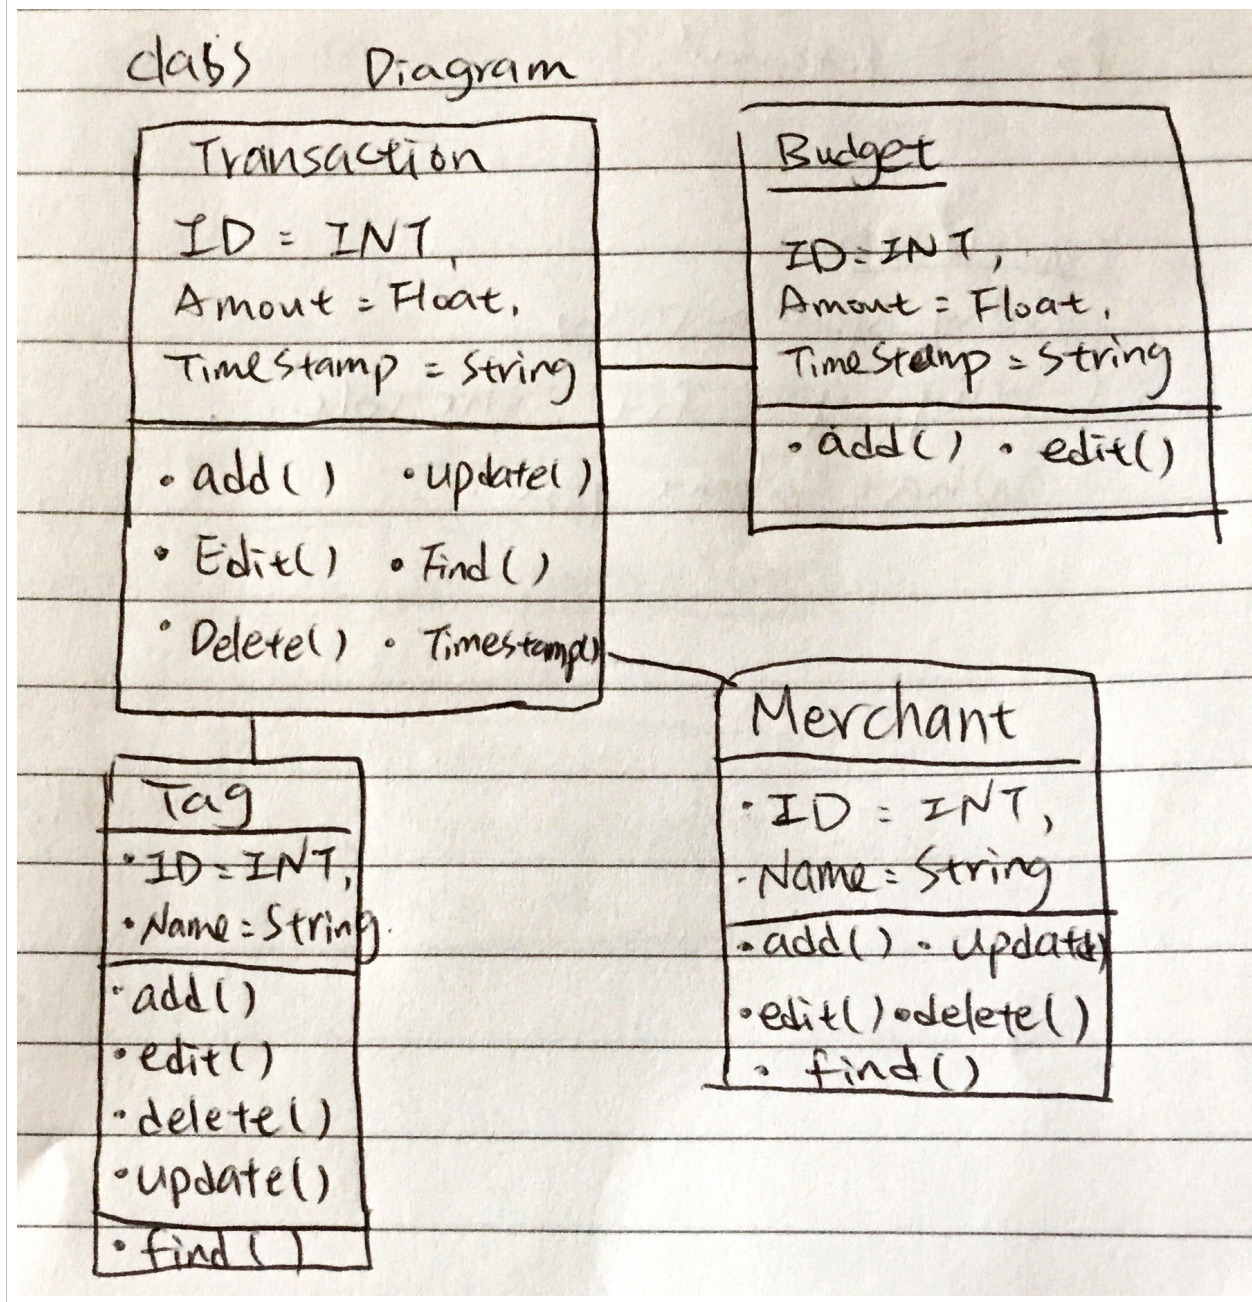 class Diagram
Transaction
ID = INT,
Amout = Float,
Timestamp = String
• add() • update()
• Edit() • Find()
• Delete() • Timestamp()
Budget
ID = INT,
Amout = Float,
TimeStamp = String
• add() • edit()
Tag
• ID = INT,
• Name = String
• add()
• edit()
• delete()
• update()
• find()
Merchant
• ID = INT,
• Name = String
• add() • update()
• edit() • delete()
• find()